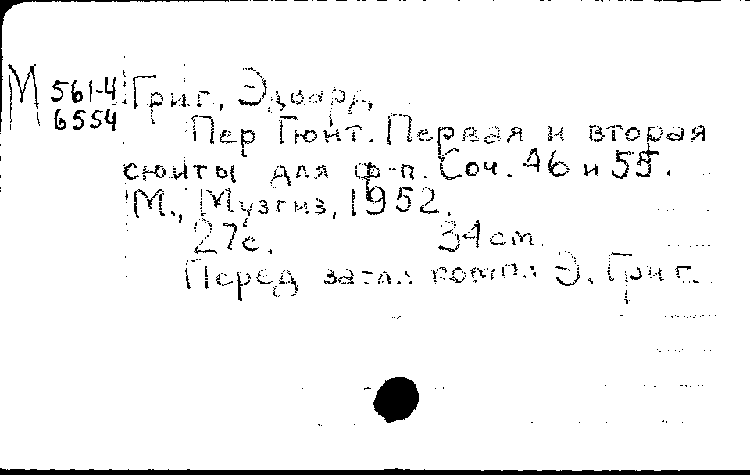 М 561-4 Григ, Эдвард
6554
Пер Гюнт. Первая и вторая
сюиты для ф-п. Соч. 46 и 55.
М., Музгиз, 1952.
27с. 34 см.
Перед загл.: комп.: Э. Григ.